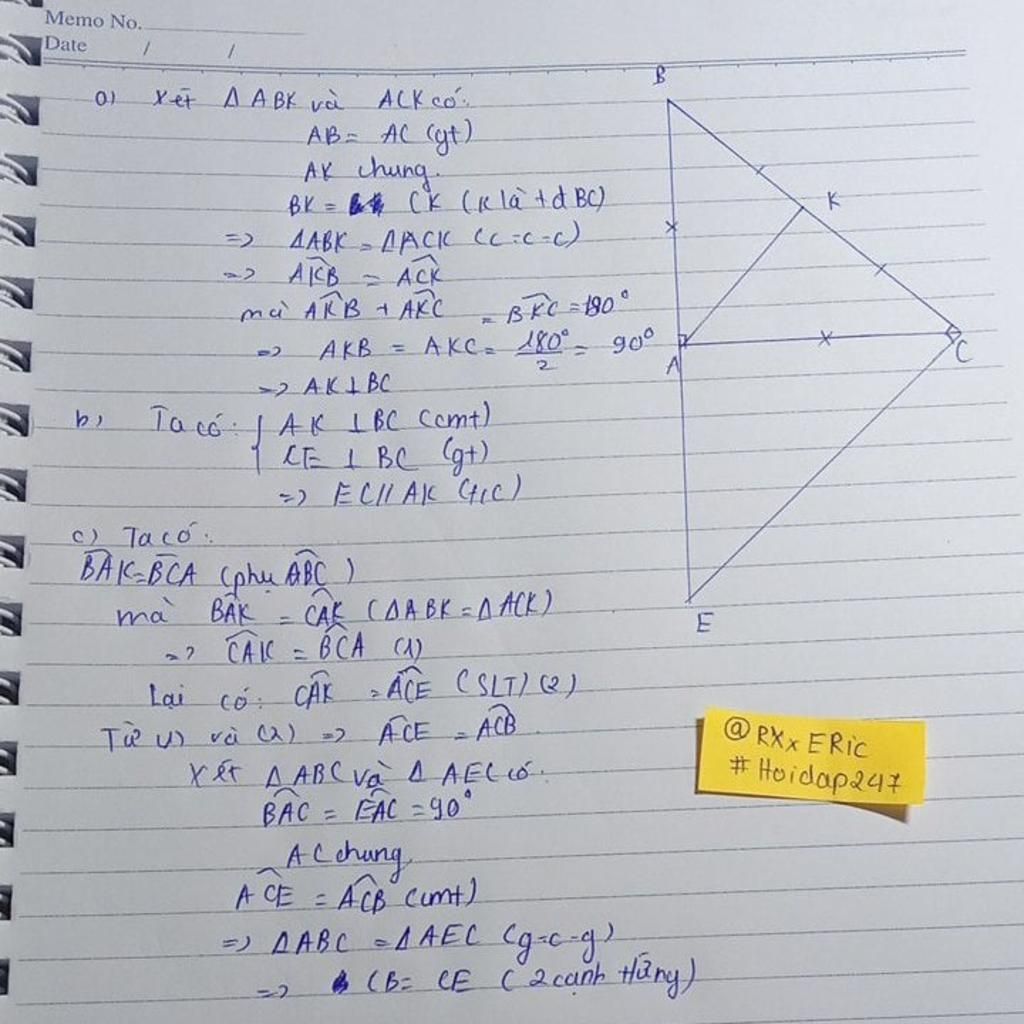 Memo No.
Date / /
a) Xét Δ ABK và ACK có:
AB = AC (gt)
AK chung.
BK = CK (K là tđ BC)
=> ΔABK = ΔACK (c-c-c)
=> AK̂B = AĈK
mà AK̂B + AK̂C = BK̂C = 180°
=> AKB = AKC = 180°/2 = 90°
=> AK⊥BC
b, Ta có: { AK ⊥ BC (cmt)
CE ⊥ BC (gt)
=> EC // AK (t/c)
c) Ta có:
BÂK = BĈA (phụ AB̂C)
mà BÂK = CÂK (ΔABK = ΔACK)
=> CÂK = BĈA (1)
Lại có: CÂK = AĈE (SLT) (2)
Từ (1) và (2) => AĈE = AĈB
Xét Δ ABC và Δ AEC có:
BÂC = EÂC = 90°
AC chung
AĈE = AĈB (cmt)
=> ΔABC = ΔAEC (g-c-g)
=> CB = CE (2 cạnh tứng)
B
K
A
C
E
@RXxERic
#Hoidap247